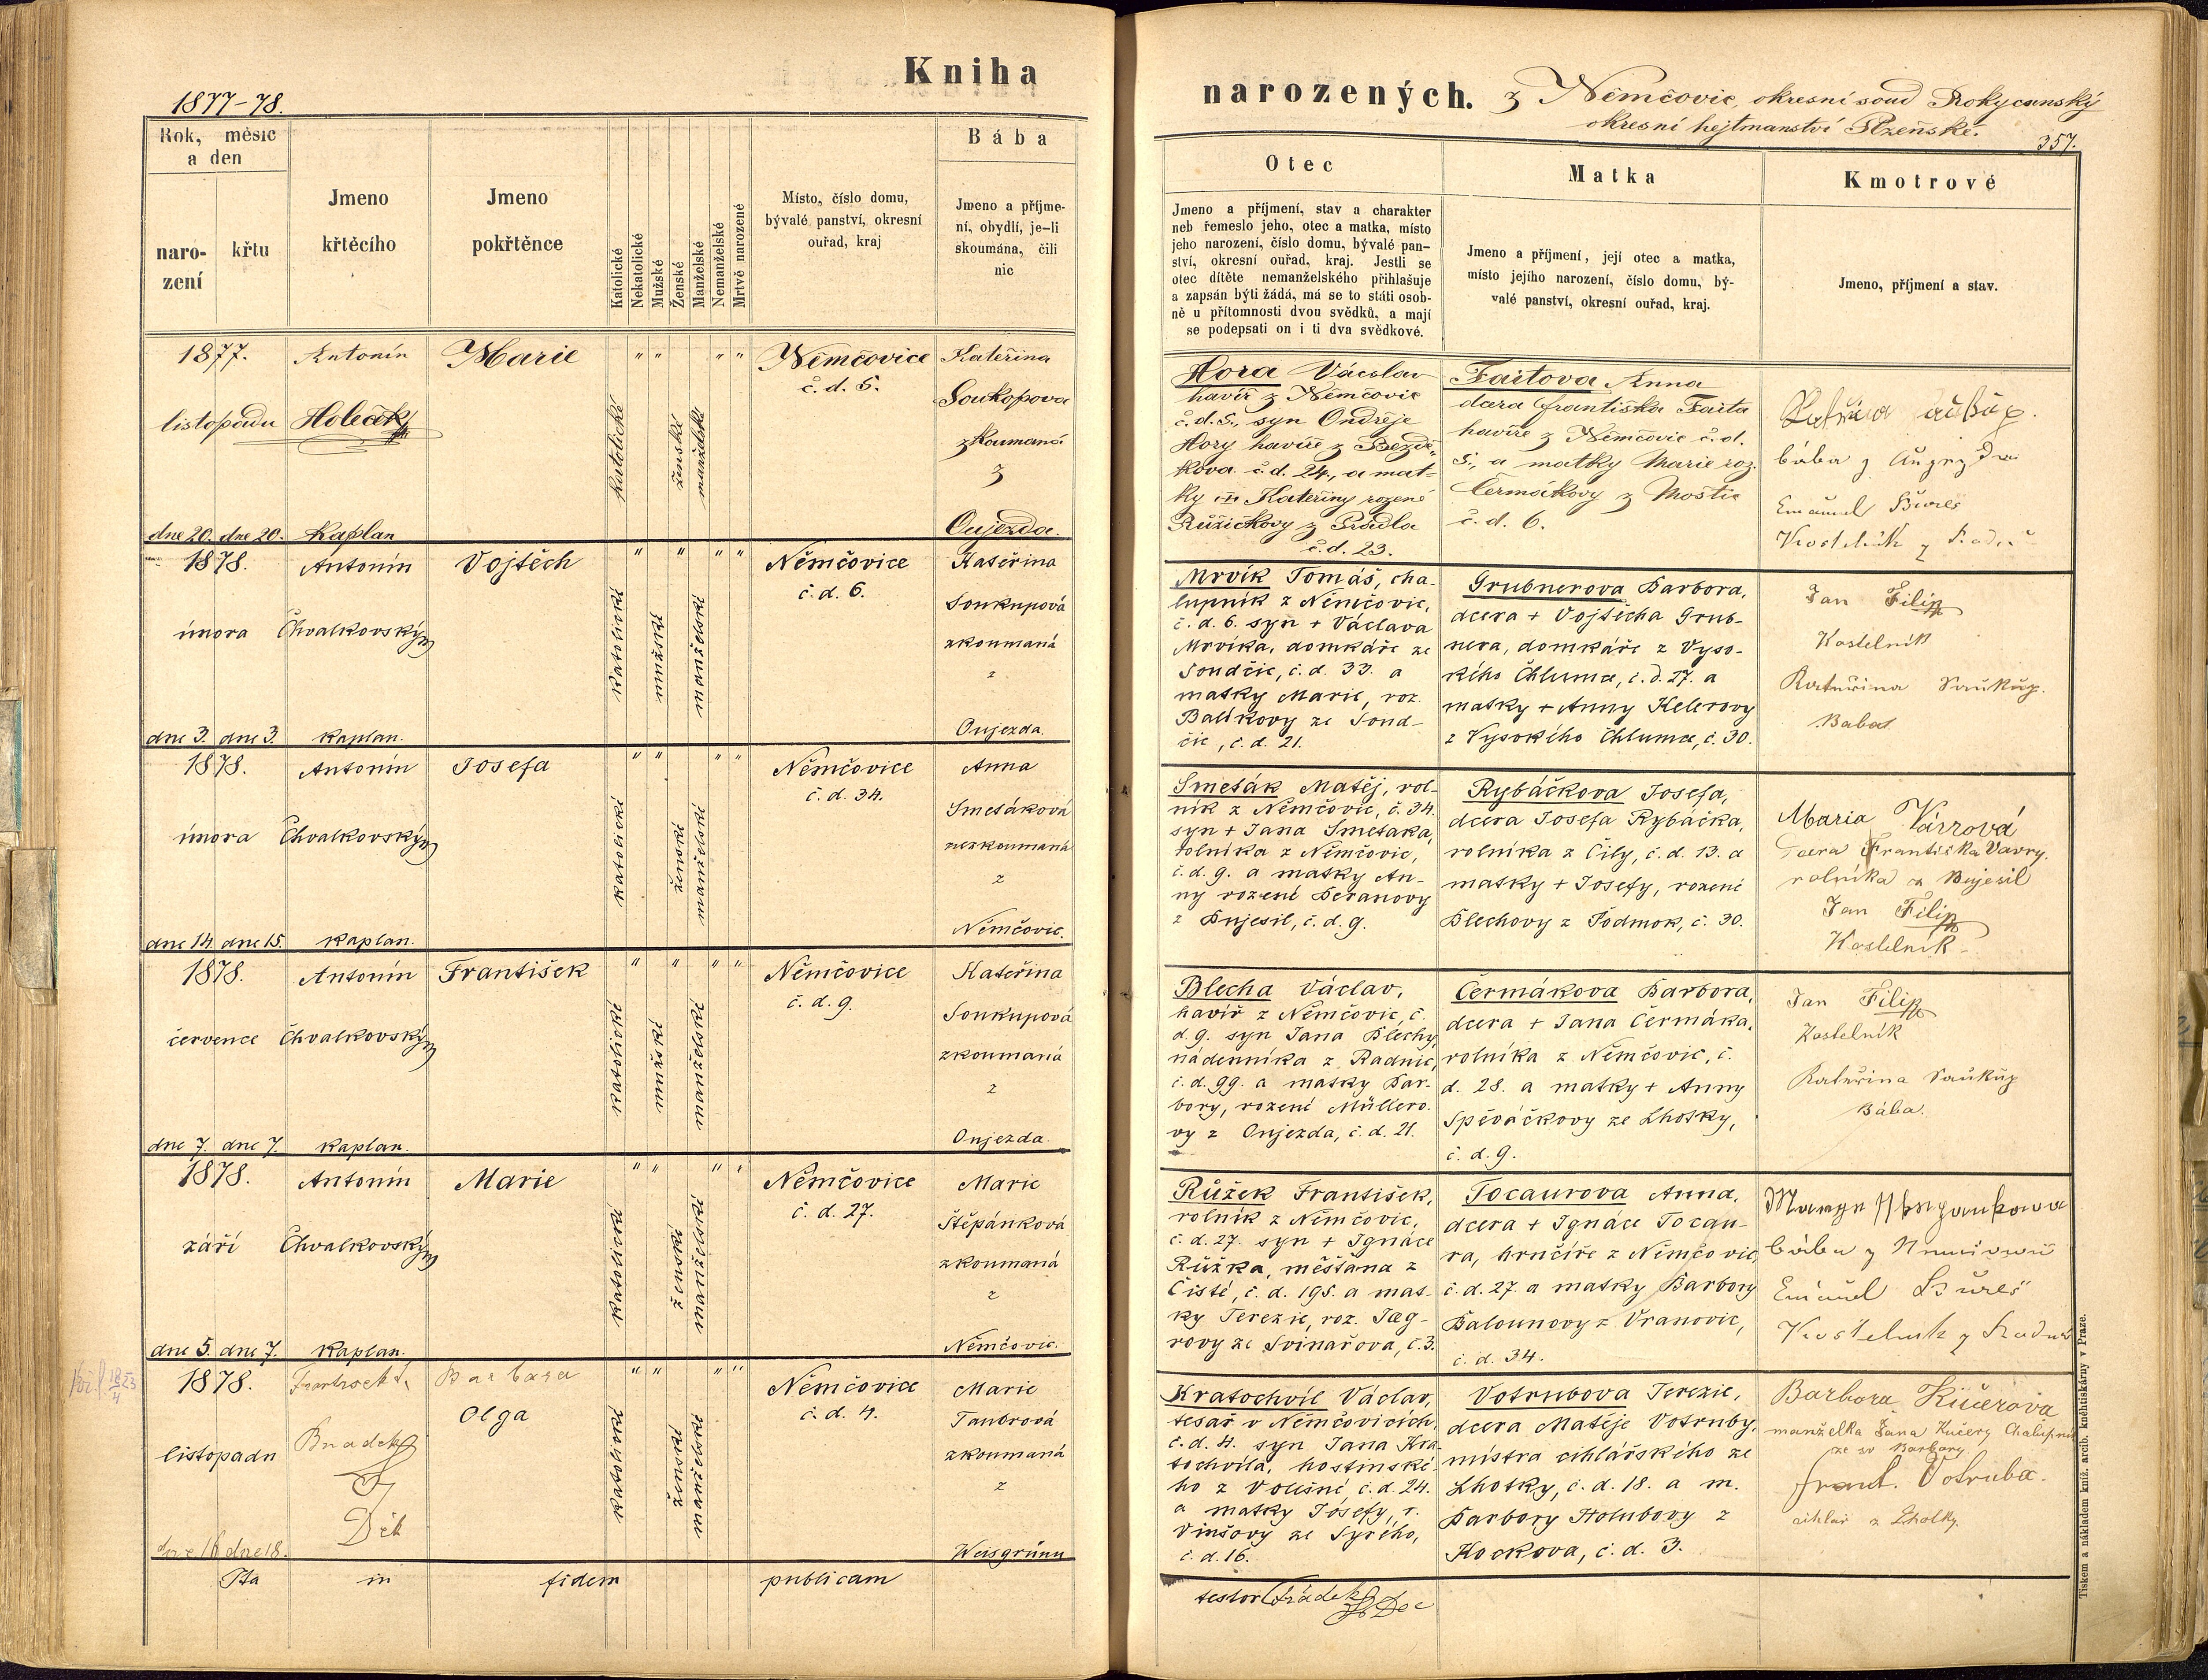 Kniha
1877-78.
Rok, měsíc
a den
naro-
zení
křtu
Jmeno
křtěcího
Jmeno
pokřtěnce
Katolické
Nekatolické
Mužské
Ženské
Manželské
Nemanželské
Mrtvě narozené
Místo, číslo domu,
bývalé panství, okresní
ouřad, kraj
Bába
Jmeno a příjme-
ní, obydlí, je-li
skoumána, čili
nic
1877.
listopadu
dne 20. dne 20.
Antonín
Holeček
Kaplan
Marie
" " " "
katolické
ženské
manželské
Němčovice
č. d. 5.
Kateřina
Soukopova
zkoumaná
z
Oujezda.
1878.
února
dne 3. dne 3.
Antonín
Chvalkovský
kaplan.
Vojtěch
" " " "
katolické
mužské
manželské
Němčovice
č. d. 6.
Kateřina
Soukupová
zkoumaná
z
Oujezda.
1878.
února
dne 14. dne 15.
Antonín
Chvalkovský
kaplan.
Josefa
" " " "
katolické
ženské
manželské
Němčovice
č. d. 34.
Anna
Smetáková
nezkoumaná
z
Němčovic.
1878.
července
dne 7. dne 7.
Antonín
Chvalkovský
kaplan.
František
" " " "
katolické
mužské
manželské
Němčovice
č. d. 9.
Kateřina
Soukupová
zkoumaná
z
Oujezda.
1878.
září
dne 5. dne 7.
Antonín
Chvalkovský
kaplan.
Marie
" " " "
katolické
ženské
manželské
Němčovice
č. d. 27.
Marie
Štěpánková
zkoumaná
z
Němčovic.
1878.
listopadu
dne 16 dne 18.
Barbara
Olga
" " " "
katolické
ženské
manželské
Němčovice
č. d. 4.
Marie
Taubrová
zkoumaná
z
Weisgrünu
Ita in fidem publicam
narozených. z Němčovic, okresní soud Rokycanský
okresní hejtmanství Plzeňské.
357.
Otec
Jmeno a příjmení, stav a charakter
neb řemeslo jeho, otec a matka, místo
jeho narození, číslo domu, bývalé pan-
ství, okresní ouřad, kraj. Jestli se
otec dítěte nemanželského přihlašuje
a zapsán býti žádá, má se to státi osob-
ně u přítomnosti dvou svědků, a mají
se podepsati on i ti dva svědkové.
Matka
Jmeno a příjmení, její otec a matka,
místo jejího narození, číslo domu, bý-
valé panství, okresní ouřad, kraj.
Kmotrové
Jmeno, příjmení a stav.
Hora Václav
havíř z Němčovic
č. d. 5., syn Ondřeje
Hory havíře z Bezdě-
kova č. d. 24., a mat-
ky Kateřiny rozené
Růžičkovy z Prádla
č. d. 23.
Faitova Anna
dcera Františka Faita
havíře z Němčovic č. d.
5., a matky Marie roz.
Čermákovy z Moštic
č. d. 6.
bába z
Emanuel Bureš
Kostelník z Radnic
Mrvík Tomáš, cha-
lupník z Němčovic,
č. d. 6. syn + Václava
Mrvíka, domkáře ze
Soudčic, č. d. 33. a
matky Marie, roz.
Balíkovy ze Soud-
čic, č. d. 21.
Grubnerova Barbora,
dcera + Vojtěcha Grub-
nera, domkáře z Vyso-
kého Chlumu, č. d. 27. a
matky + Anny Kelerovy
z Vysokého Chlumu, č. 30.
Jan Filip
Kostelník
Kateřina Saukup.
Baba
Smeták Matěj, rol-
ník z Němčovic, č. 34.
syn + Jana Smetáka,
rolníka z Němčovic,
č. d. 9. a matky An-
ny rozené Beranovy
z Bujesil, č. d. 9.
Rybáčkova Josefa,
dcera Josefa Rybáčka,
rolníka z Čily, č. d. 13. a
matky + Josefy, rozené
Blechovy z Podmok, č. 30.
Maria Vávrová
Dcera Františka Vavry.
rolníka z Bujesil
Jan Filip
Kostelník
Blecha Václav,
havíř z Němčovic, č.
d. 9. syn Jana Blechy,
nádenníka z Radnic,
č. d. 99. a matky Bar-
bory, rozené Müllero-
vy z Oujezda, č. d. 21.
Čermákova Barbora,
dcera + Jana Čermáka,
rolníka z Němčovic, č.
d. 28. a matky + Anny
Spěváčkovy ze Lhotky,
č. d. 9.
Jan Filip
Kostelník
Kateřina Saukup
Bába.
Růžek František,
rolník z Němčovic,
č. d. 27. syn + Ignáce
Růžka, měšťana z
Čisté, č. d. 195. a mat-
ky Terezie, roz. Jäg-
rovy ze Svinařova, č. 3.
Tocaurova Anna,
dcera + Ignáce Tocau-
ra, hrnčíře z Němčovic,
č. d. 27. a matky Barbory
Balounovy z Vranovic,
č. d. 34.
bába z
Emanuel Bureš
Kostelník z Radnic
Kratochvíl Václav,
tesař v Němčovicích,
č. d. 4. syn Jana Kra-
tochvíla, hostinské-
ho z Volešné, č. d. 24.
a matky Josefy, r.
Vinšovy ze Syrého,
č. d. 16.
Votrubova Terezie,
dcera Matěje Votruby,
mistra cihlářského ze
Lhotky, č. d. 18. a m.
Barbory Holubovy z
Kockova, č. d. 3.
Barbora Kučerova
manželka Jana Kučery Chalupnik
ze sv Barbory
Frant. Votruba.
cihlař z Lhotky.
testor
Tiskem a nákladem kníž. arcib. kněhtiskárny v Praze.